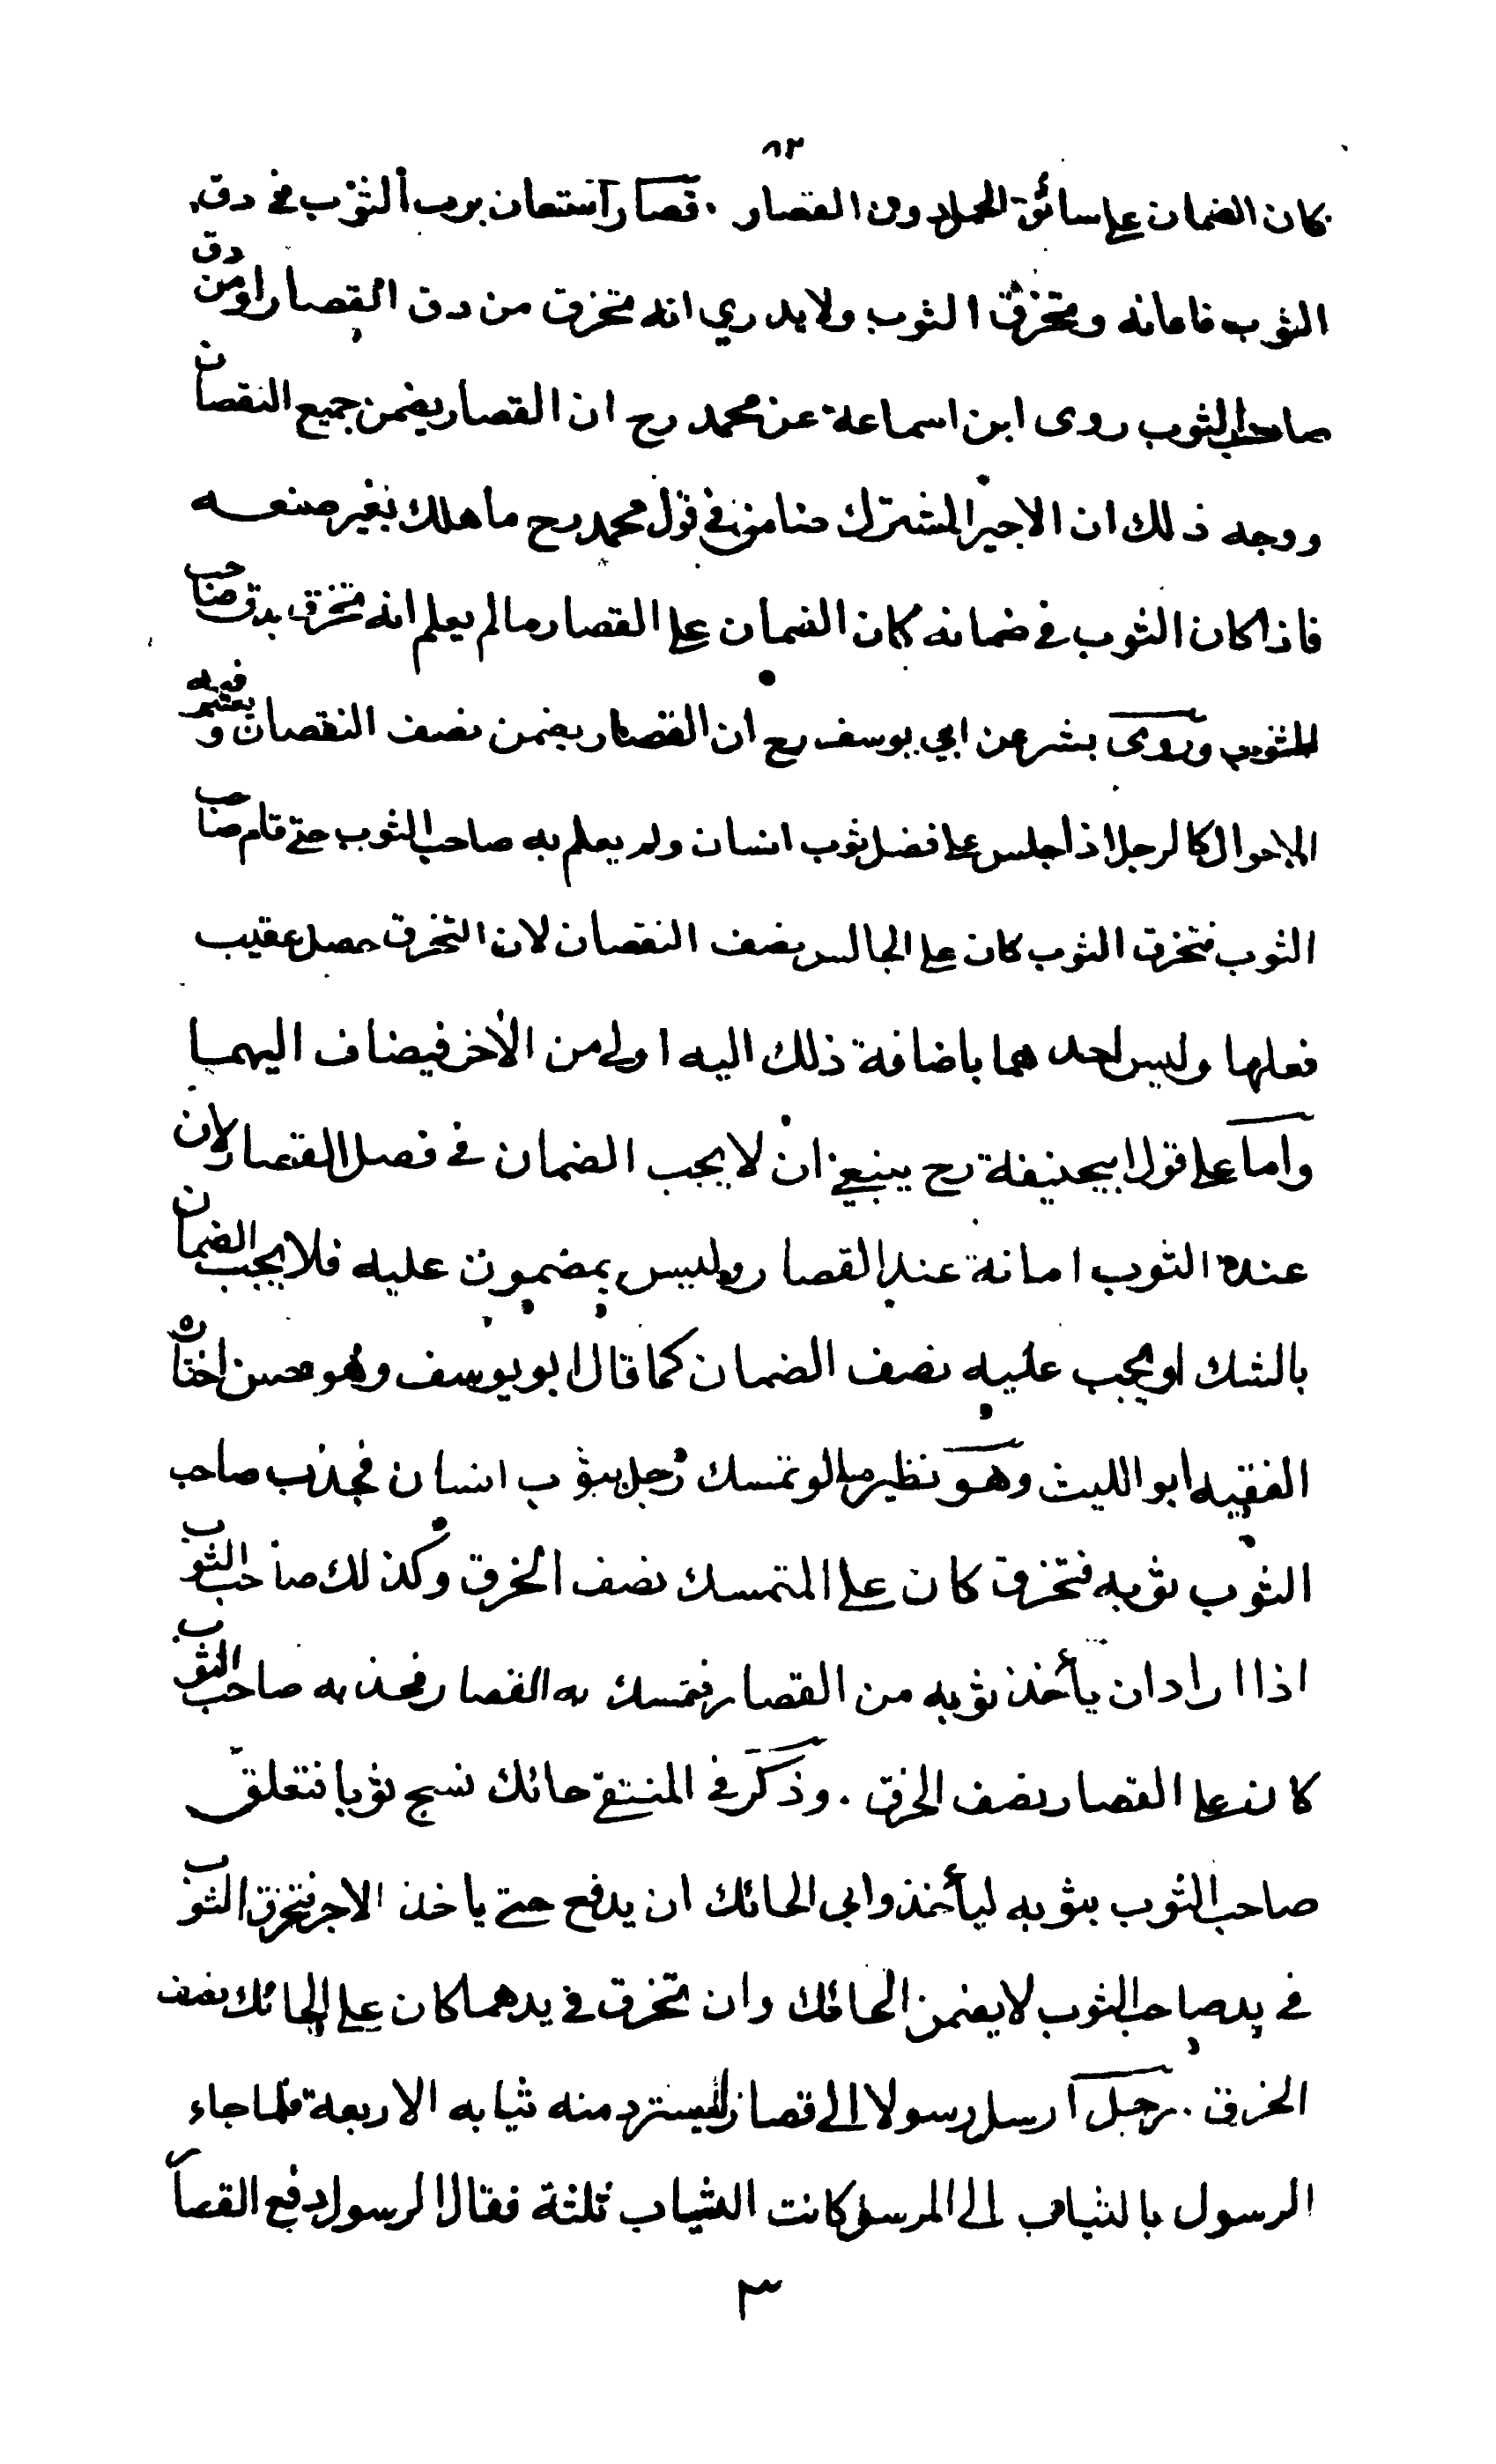 ٨٣
كان الضمان على سائق الحمل دون القصار . قصار استعان برب الثوب في دق
الثوب فاعانه وتخرق الثوب ولا يدري انه تخرق من دق القصار او من دق
صاحب الثوب روى ابن اسماعة عن محمد رح ان القصار يضمن جميع النقصان
ووجه ذلك ان الاجير المشترك ضامن في قول محمد رح ما هلك بغير صنعه
فاذا كان الثوب في ضمانه كان الضمان على القصار ما لم يعلم انه تخرق بدق صاحب
الثوب وروى بشر عن ابي يوسف رح ان القصار يضمن نصف النقصان ويعتبر فيه
الاحوال كالرجل اذا جلس على فضل ثوب انسان ولم يعلم به صاحب الثوب حتى قام صاحب
الثوب فتخرق الثوب كان على الجالس نصف النقصان لان التخرق حصل عقيب
فعلهما وليس احدهما باضافة ذلك اليه اولى من الاخر فيضاف اليهما
واما على قول ابيحنيفة رح ينبغي ان لا يجب الضمان في فصل القصار لان
عنده الثوب امانة عند القصار وليس بمضمون عليه فلا يجب الضمان
بالشك او يجب عليه نصف الضمان كما قال ابو يوسف وهو حسن اختاره
الفقيه ابو الليث وهو نظير ما لو تمسك رجل بثوب انسان فجذب صاحب
الثوب ثوبه فتخرق كان على المتمسك نصف الخرق وكذلك صاحب الثوب
اذا اراد ان يأخذ ثوبه من القصار فتمسك به القصار فجذبه صاحب الثوب
كان على القصار نصف الخرق . وذكر في المنتقى حائك نسج ثوبا فتعلق
صاحب الثوب بثوبه ليأخذ وابى الحائك ان يدفع حتى ياخذ الاجر فتخرق الثوب
في يد صاحب الثوب لا يضمن الحائك وان تخرق في يدهما كان على الحائك نصف
الخرق . رجل ارسل رسولا الى قصار ليسترد منه ثيابه الاربعة فلما جاء
الرسول بالثياب الى المرسل كانت الثياب ثلثة فقال الرسول دفع القصار
٣